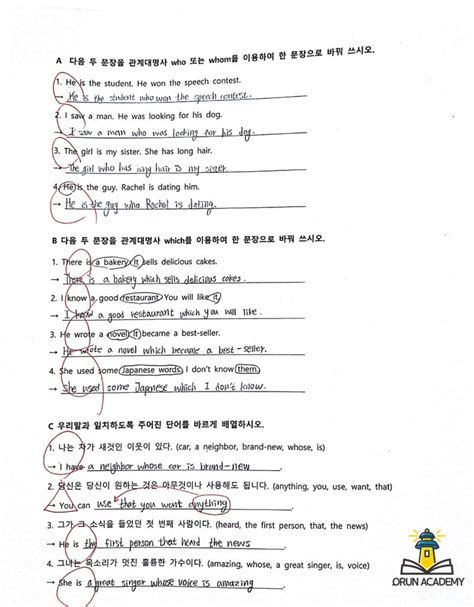 A 다음 두 문장을 관계대명사 who 또는 whom을 이용하여 한 문장으로 바꿔 쓰시오.
1. He is the student. He won the speech contest.
→ He is the student who won the speech contest.
2. I saw a man. He was looking for his dog.
→ I saw a man who was looking for his dog.
3. The girl is my sister. She has long hair.
→ The girl who has long hair is my sister.
4. He is the guy. Rachel is dating him.
→ He is the guy who Rachel is dating.
B 다음 두 문장을 관계대명사 which를 이용하여 한 문장으로 바꿔 쓰시오.
1. There is a bakery. It sells delicious cakes.
→ There is a bakery which sells delicious cakes.
2. I know a good restaurant. You will like it.
→ I know a good restaurant which you will like.
3. He wrote a novel. It became a best-seller.
→ He wrote a novel which became a best-seller.
4. She used some Japanese words. I don't know them.
→ She used some Japanese which I don't know.
C 우리말과 일치하도록 주어진 단어를 바르게 배열하시오.
1. 나는 차가 새것인 이웃이 있다. (car, a neighbor, brand-new, whose, is)
→ I have a neighbor whose car is brand-new
2. 당신은 당신이 원하는 것은 아무것이나 사용해도 됩니다. (anything, you, use, want, that)
→ You can use that you want anything
3. 그가 그 소식을 들었던 첫 번째 사람이다. (heard, the first person, that, the news)
→ He is the first person that heard the news
4. 그녀는 목소리가 멋진 훌륭한 가수이다. (amazing, whose, a great singer, is, voice)
→ She is a great singer whose voice is amazing
ORUN ACADEMY